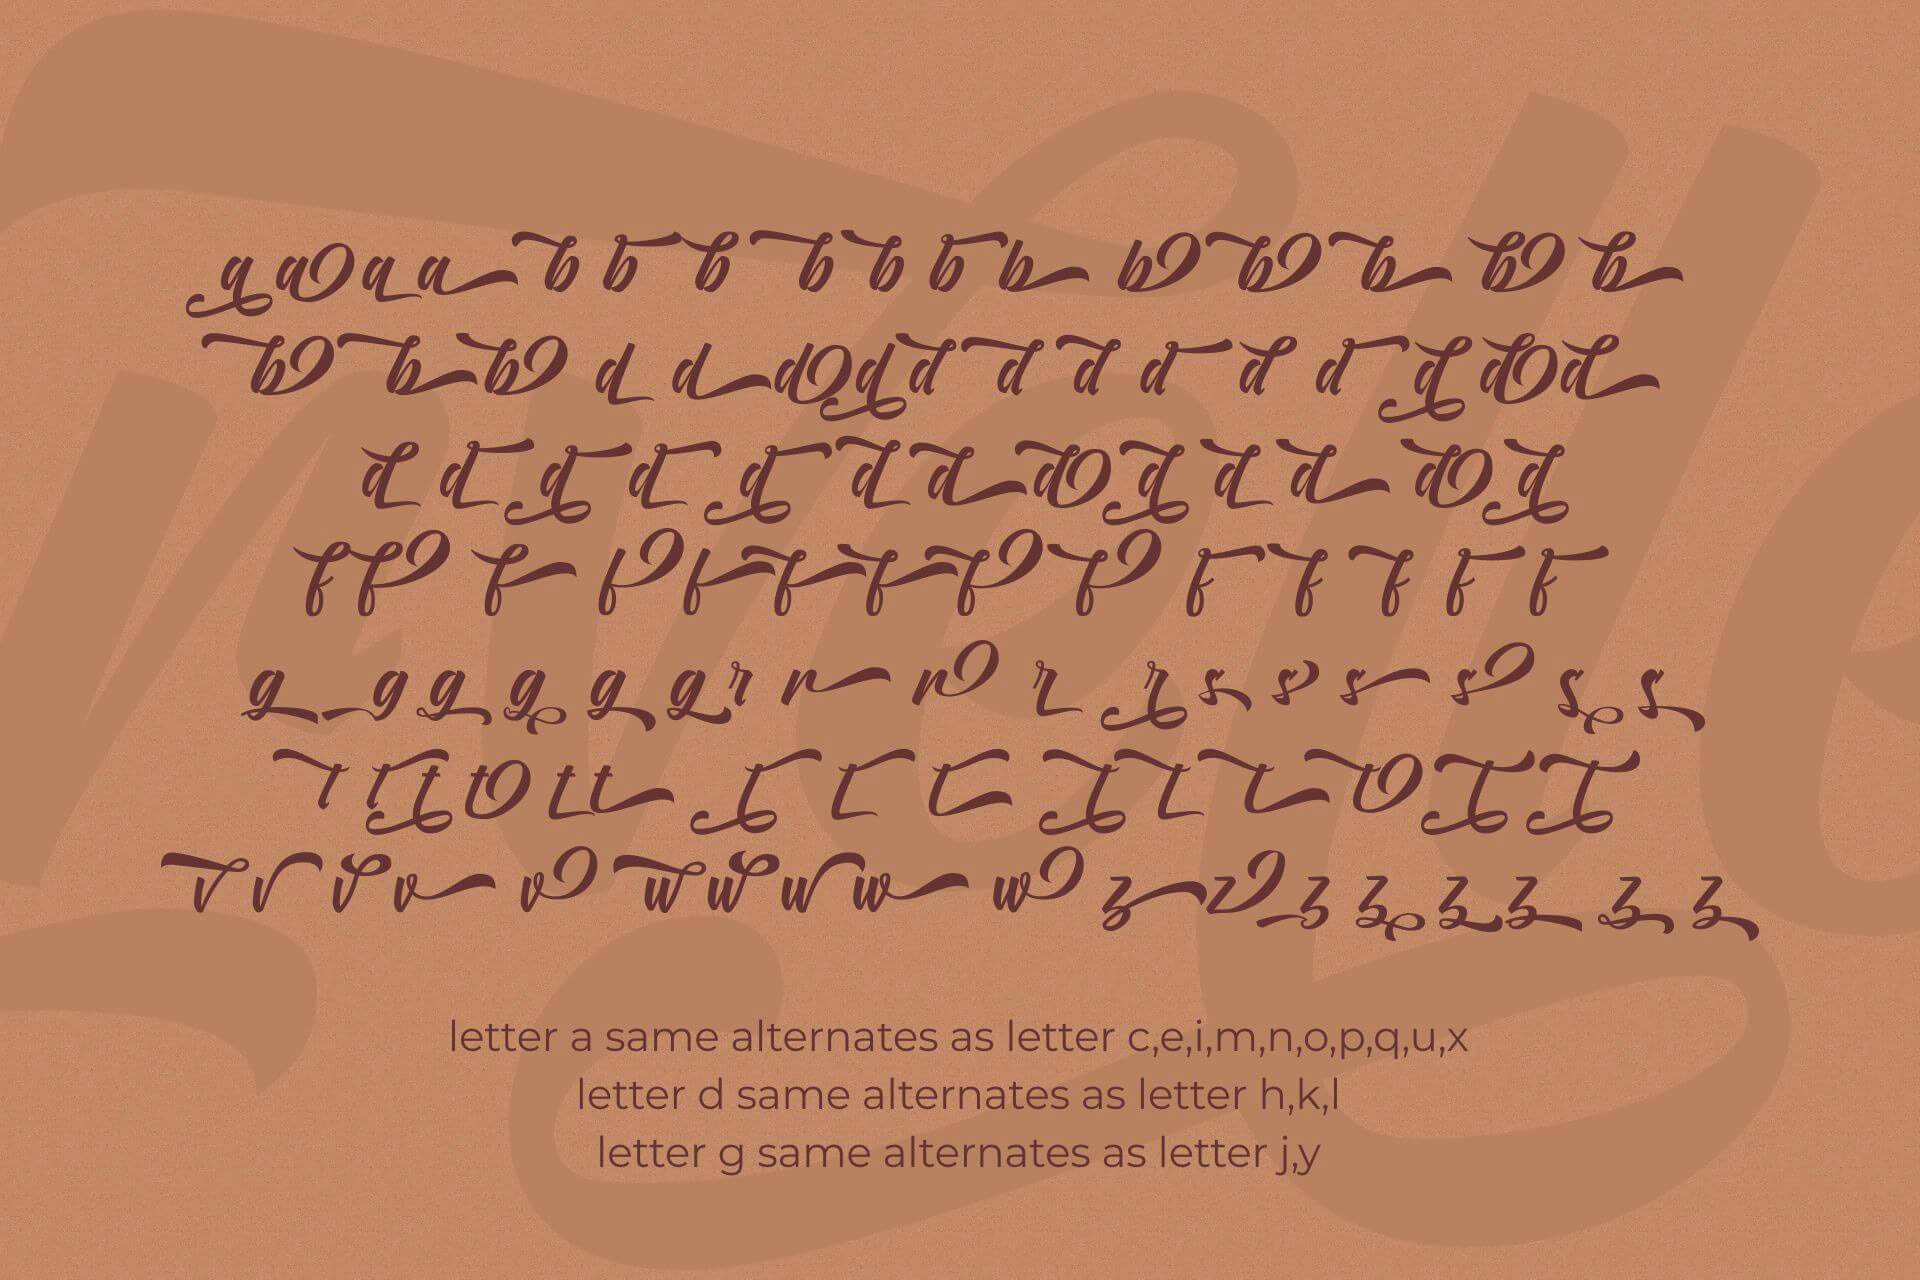 a a a a b b b b b b b b b b b b
b b b d d d d d d d d d d d d d
d d d d d d d d d d d d d
f f f f f f f f f f f f f f
g g g g g g r r r r r s s s s s s
t t t t t t t t t t t t t t t
v v v v v w w w w w z z z z z z z z
letter a same alternates as letter c,e,i,m,n,o,p,q,u,x
letter d same alternates as letter h,k,l
letter g same alternates as letter j,y